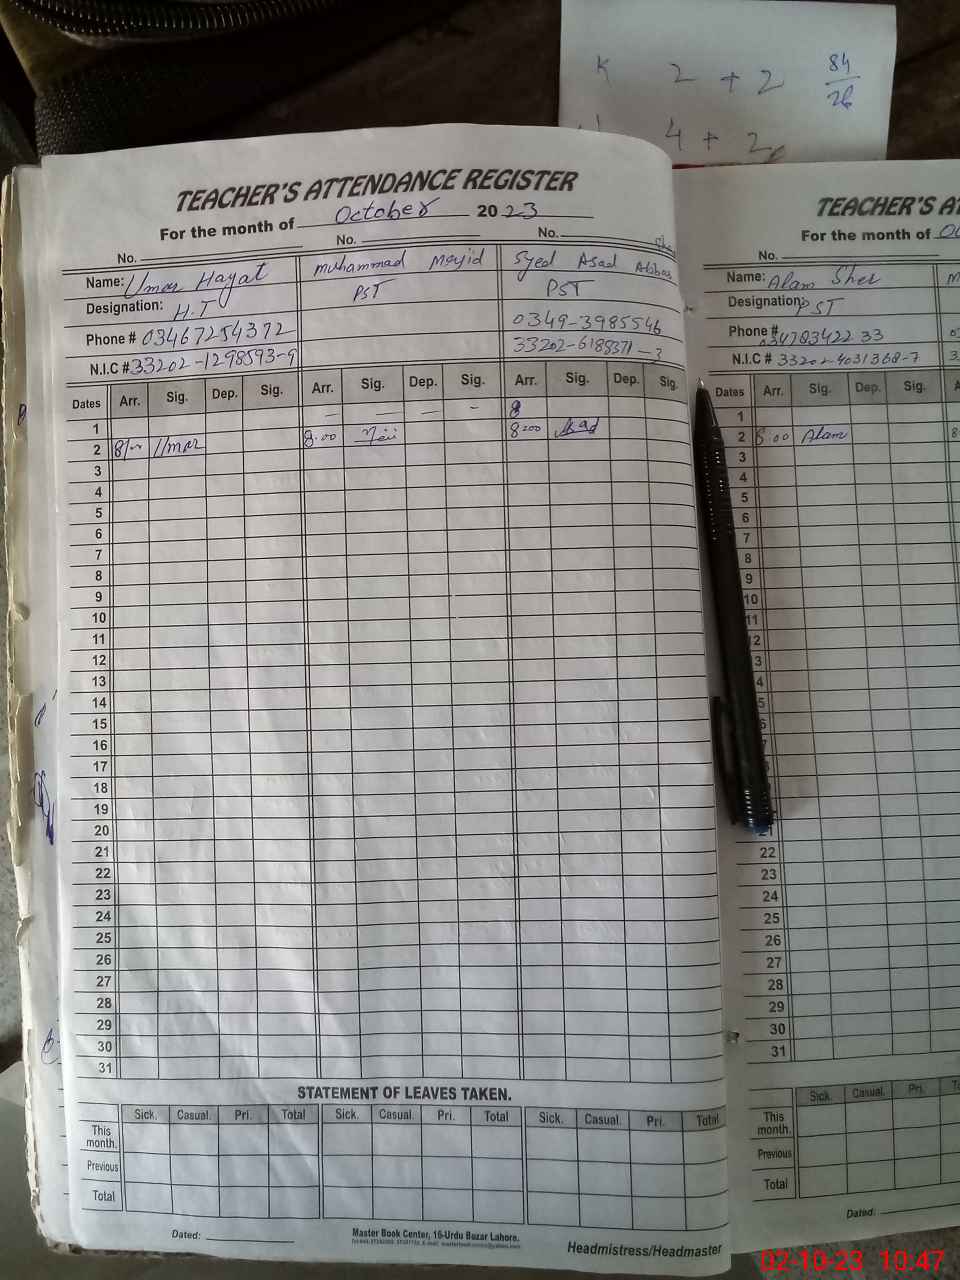 K 2 + 2 84/26
4 + 2
TEACHER'S ATTENDANCE REGISTER
For the month of October 2023
No. No. No.
Name: Umar Hayat Muhammad Majid Syed Asad Abbas
Designation: H.T PST PST
Phone # 03467254372 0349-3985546
N.I.C # 33202-1298593-9 33202-6189371-3
Dates Arr. Sig. Dep. Sig. Arr. Sig. Dep. Sig. Arr. Sig. Dep. Sig.
1 — — — - 8
2 8/00 Umar 8.00 8:00 Asad
3
4
5
6
7
8
9
10
11
12
13
14
15
16
17
18
19
20
21
22
23
24
25
26
27
28
29
30
31
STATEMENT OF LEAVES TAKEN.
Sick. Casual. Pri. Total Sick. Casual. Pri. Total Sick. Casual. Pri. Total
This month.
Previous
Total
Dated:
Master Book Center, 15-Urdu Bazar Lahore.
Headmistress/Headmaster
TEACHER'S AT
For the month of Oc
No.
Name: Alam Sher M
Designation: PST
Phone #
N.I.C # 33202-4031368-7 3
Dates Arr. Sig. Dep. Sig. A
1
2 8.00 Alam 8
3
4
5
6
7
8
9
10
11
12
13
14
15
16
17
21
22
23
24
25
26
27
28
29
30
31
Sick. Casual. Pri. To
This month.
Previous
Total
Dated:
02-10-23 10:47